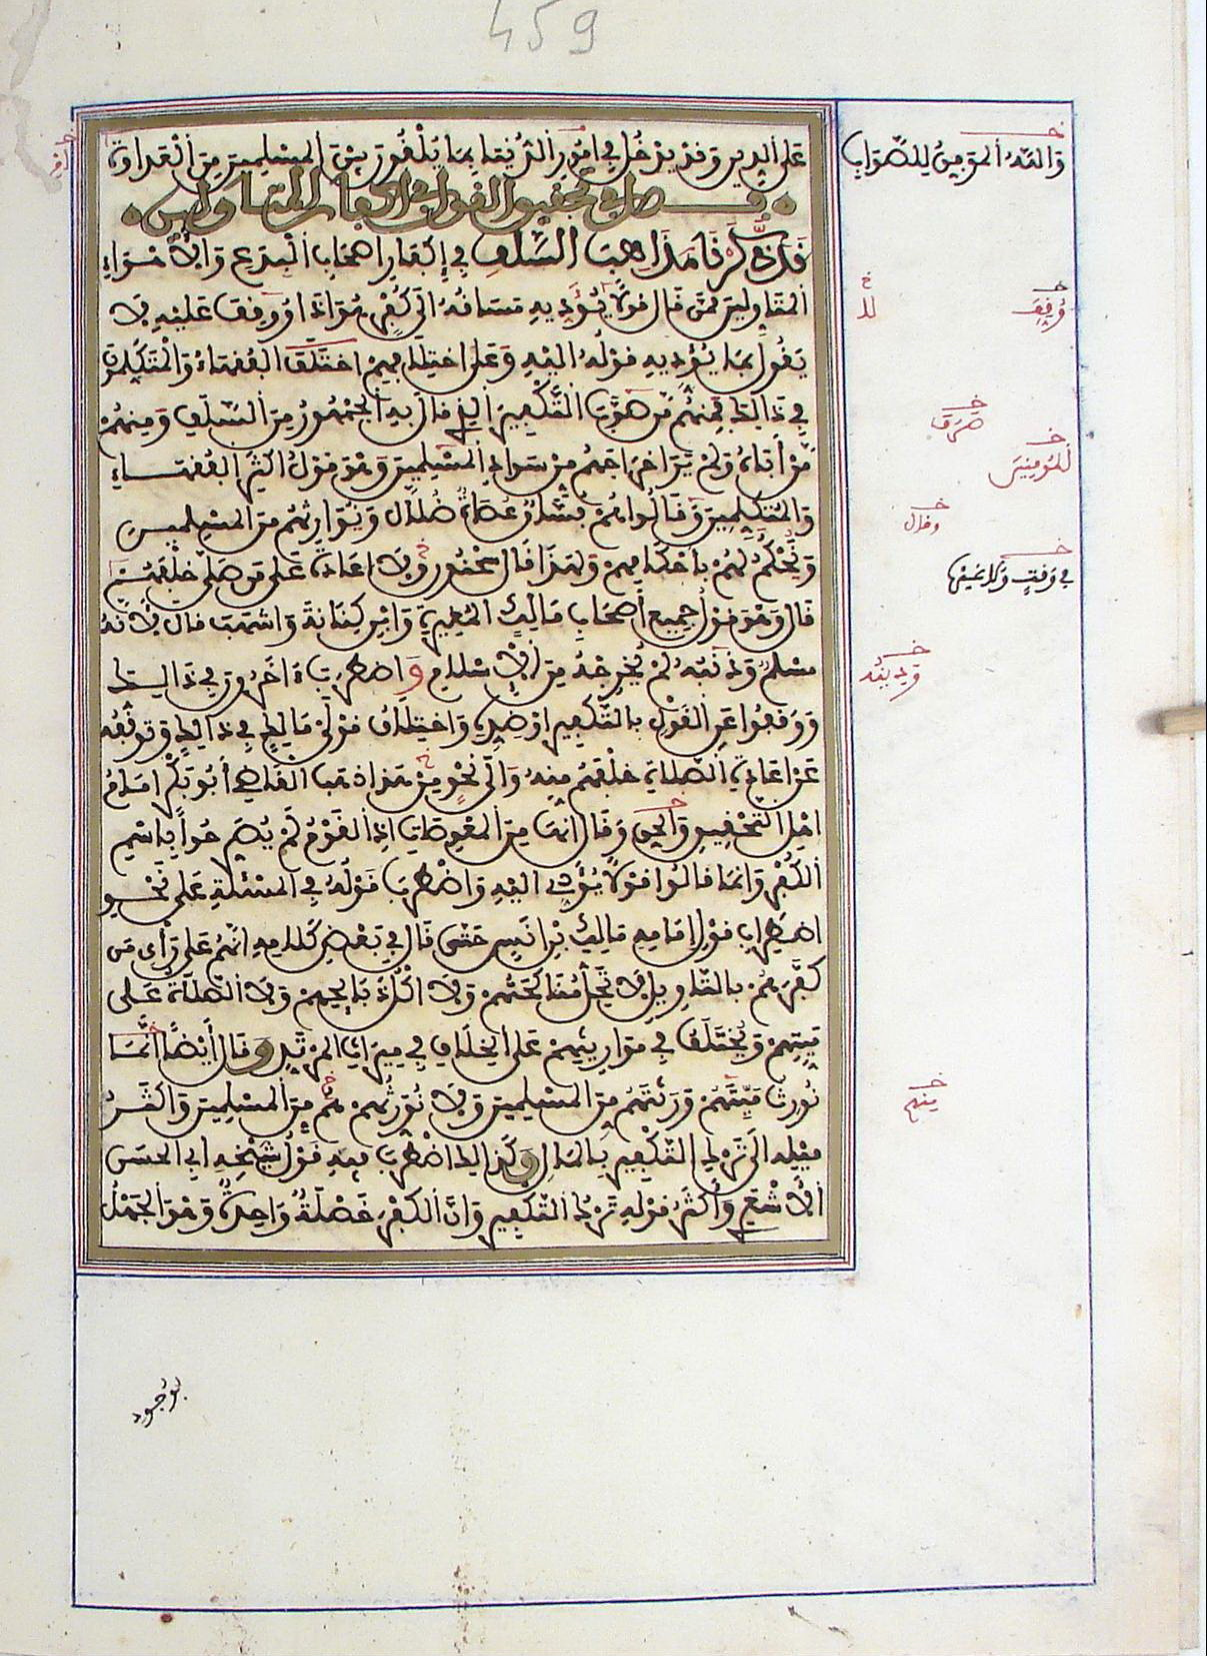 459
على الدين وقد يدخل في امور الدنيا بما يلقون بين المسلمين من العداوة
فصل في تحقيق القول في اكفار المتأولين
قد ذكرنا مذاهب السلف في إكفار اصحاب البدع والأهواء
المتأولين ممن قال قولا يؤديه مساقه الى كفر هو اذا وقف عليه لا
يقول بما يؤديه قوله اليه وعلى اختلافهم اختلف الفقهاء والمتكلمون
في ذالك فمنهم من صوب التكفير الذي قال به الجمهور من السلف ومنهم
من أباه ولم ير اخراجهم من سواد المسلمين وهو قول اكثر الفقهاء
والمتكلمين وقالوا هم فساق عصاة ضلال ونوارثهم من المسلمين
ونحكم لهم باحكامهم ولهذا قال سحنون ولا اعادة على من صلى خلفهم
قال وهو قول جميع أصحاب مالك المغيرة وابن كنانة واشهب قال لأنه
مسلم وذنبه لم يخرجه من الإسلام واضطرب اخرون في ذالك
ووقفوا عن القول بالتكفير او ضده واختلاف قولي مالك في ذالك وتوقفه
عن اعادة الصلاة خلفهم منه والى نحو من هذا ذهب القاضي أبو بكر امام
اهل التحقيق والحق وقال انها من المعوصات اذ القوم لم يصرحوا باسم
الكفر وانما قالوا قولا يؤدي اليه واضطرب قوله في المسئلة على نحو
اضطراب قول إمامه مالك بن انس حتى قال في بعض كلامه انهم على رأي من
كفرهم بالتاويل لا تحل مناكحتهم ولا اكل ذبائحهم ولا الصلاة على
ميتهم ويختلف في مواريثهم على الخلاف في ميراث المرتد وقال أيضا انما
نورث ميتهم ورثتهم من المسلمين ولا نورثهم هم من المسلمين واكثر
ميله الى ترك التكفير بالمآل وكذالك اضطرب فيه قول شيخه ابي الحسن
الأشعري وأكثر قوله ترك التكفير وان الكفر خصلة واحدة وهو الجهل
بوجود
والله الموفق للصواب
وقف
صرف
للمومنين
وقال
في وقت ولا غيرها
منهم